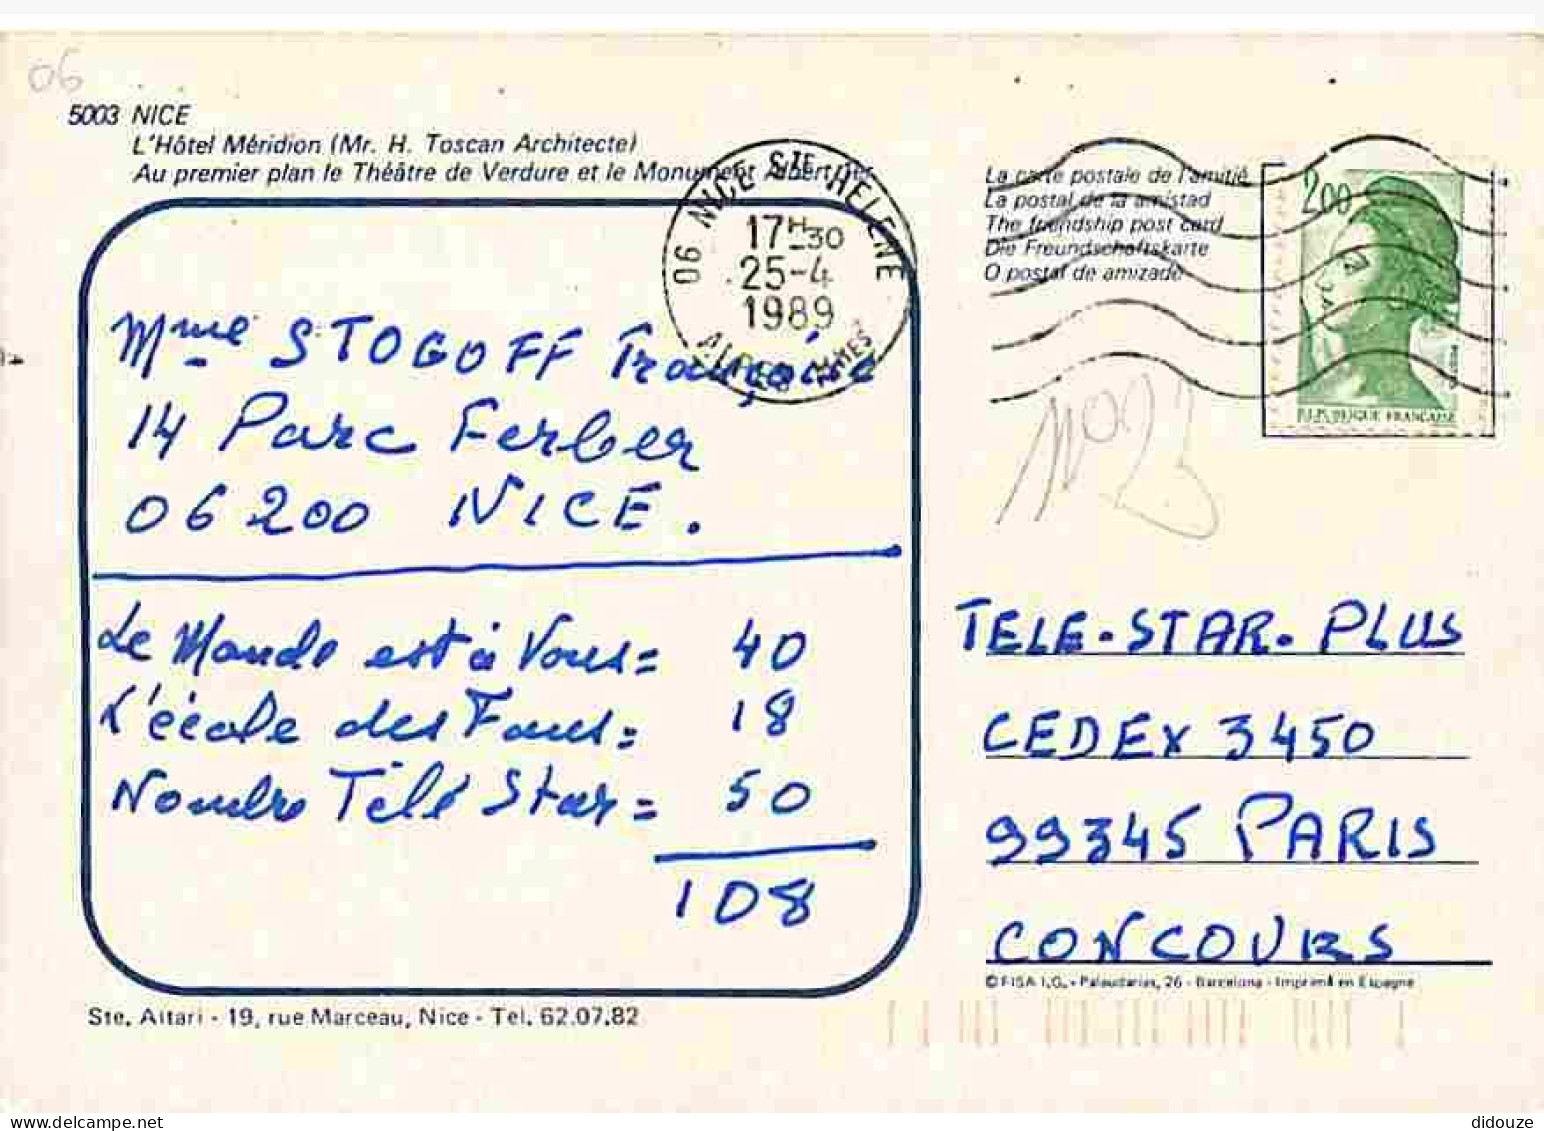 06
5003 NICE
L'Hôtel Méridion (Mr. H. Toscan Architecte)
Au premier plan le Théâtre de Verdure et le Monument Albert 1er
06 NICE STE HELENE
17H30
25-4
1989
ALPES MMES
La carte postale de l'amitié
La postal de la amistad
The friendship post card
Die Freundschaftskarte
O postal de amizade
2,00
REPUBLIQUE FRANÇAISE
Mme STOGOFF Françoise
14 Parc Ferber
06200 NICE.
Le Monde est à Vous = 40
L'école des Fans = 18
Nombre Télé Star = 50
108
TELE-STAR-PLUS
CEDEX 3450
99345 PARIS
CONCOURS
© FISA I.G. - Palaudarias, 26 - Barcelona - Imprimé en Espagne
Ste. Altari - 19, rue Marceau, Nice - Tel. 62.07.82
delcampe.net
didouze